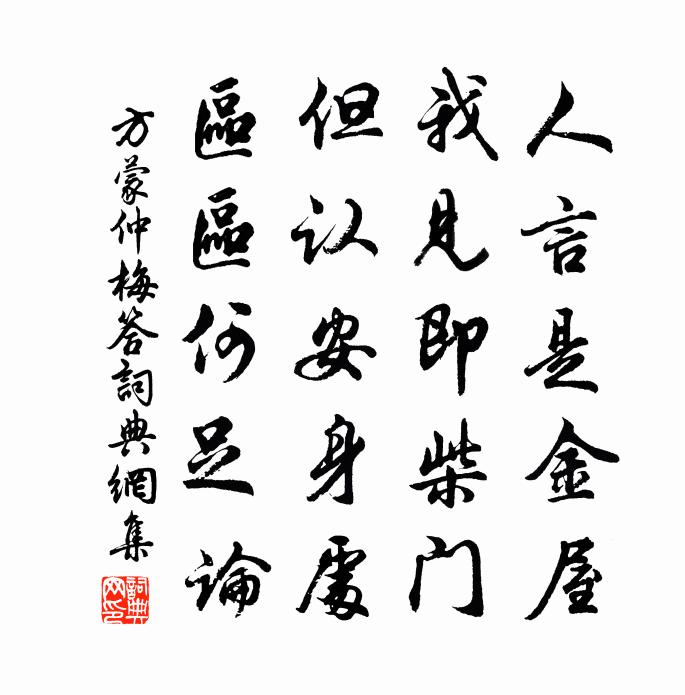 人言是金屋
我見即柴門
但认安身處
區區何足論
方蒙仲梅答詞典網集
詞典
网印